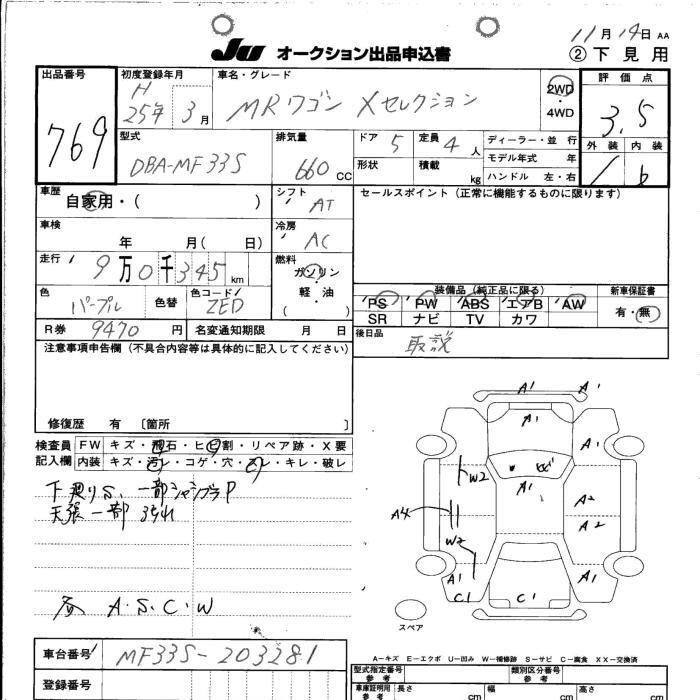 11月14日 AA
JU オークション出品申込書 ②下見用
出品番号 初度登録年月 車名・グレード 2WD・4WD 評価点
769 H25年3月 MRワゴン Xセレクション 3.5
型式 排気量 ドア 5 定員 4人 ディーラー・並行 外装 内装
DBA-MF33S 660cc 形状 積載 kg モデル年式 年 b
ハンドル 左・右
車歴 自家用・( ) シフト AT セールスポイント (正常に機能するものに限ります)
車検 年 月( 日) 冷房 AC
走行 9万0千345km 燃料 ガソリン・軽油( )
装備品 (純正品に限る) 新車保証書
色 パープル 色替 色コード ZED PS PW ABS エアB AW 有・無
SR ナビ TV カワ
R券 9470円 名変通知期限 月 日 後日品 取説
注意事項申告欄 (不具合内容等は具体的に記入してください)
修復歴 有 〔箇所 〕
検査員 FW キズ・飛石・ヒビ割・リペア跡・X要
記入欄 内装 キズ・汚レ・コゲ・穴・スレ・キレ・破レ
下廻りS、一部シャシブラP
天張一部汚れ
A.S.C.W
A1 A1
A1
A1
W2 A1 A2
A4 A2
W2
A1 A1
C1 C1
スペア
A－キズ E－エクボ U－凹み W－補修跡 S－サビ C－腐食 XX－交換済
車台番号 MF33S-203281
型式指定番号 参考 類別区分番号 参考
登録番号 車庫証明用 参考 長さ cm 幅 cm 高さ cm